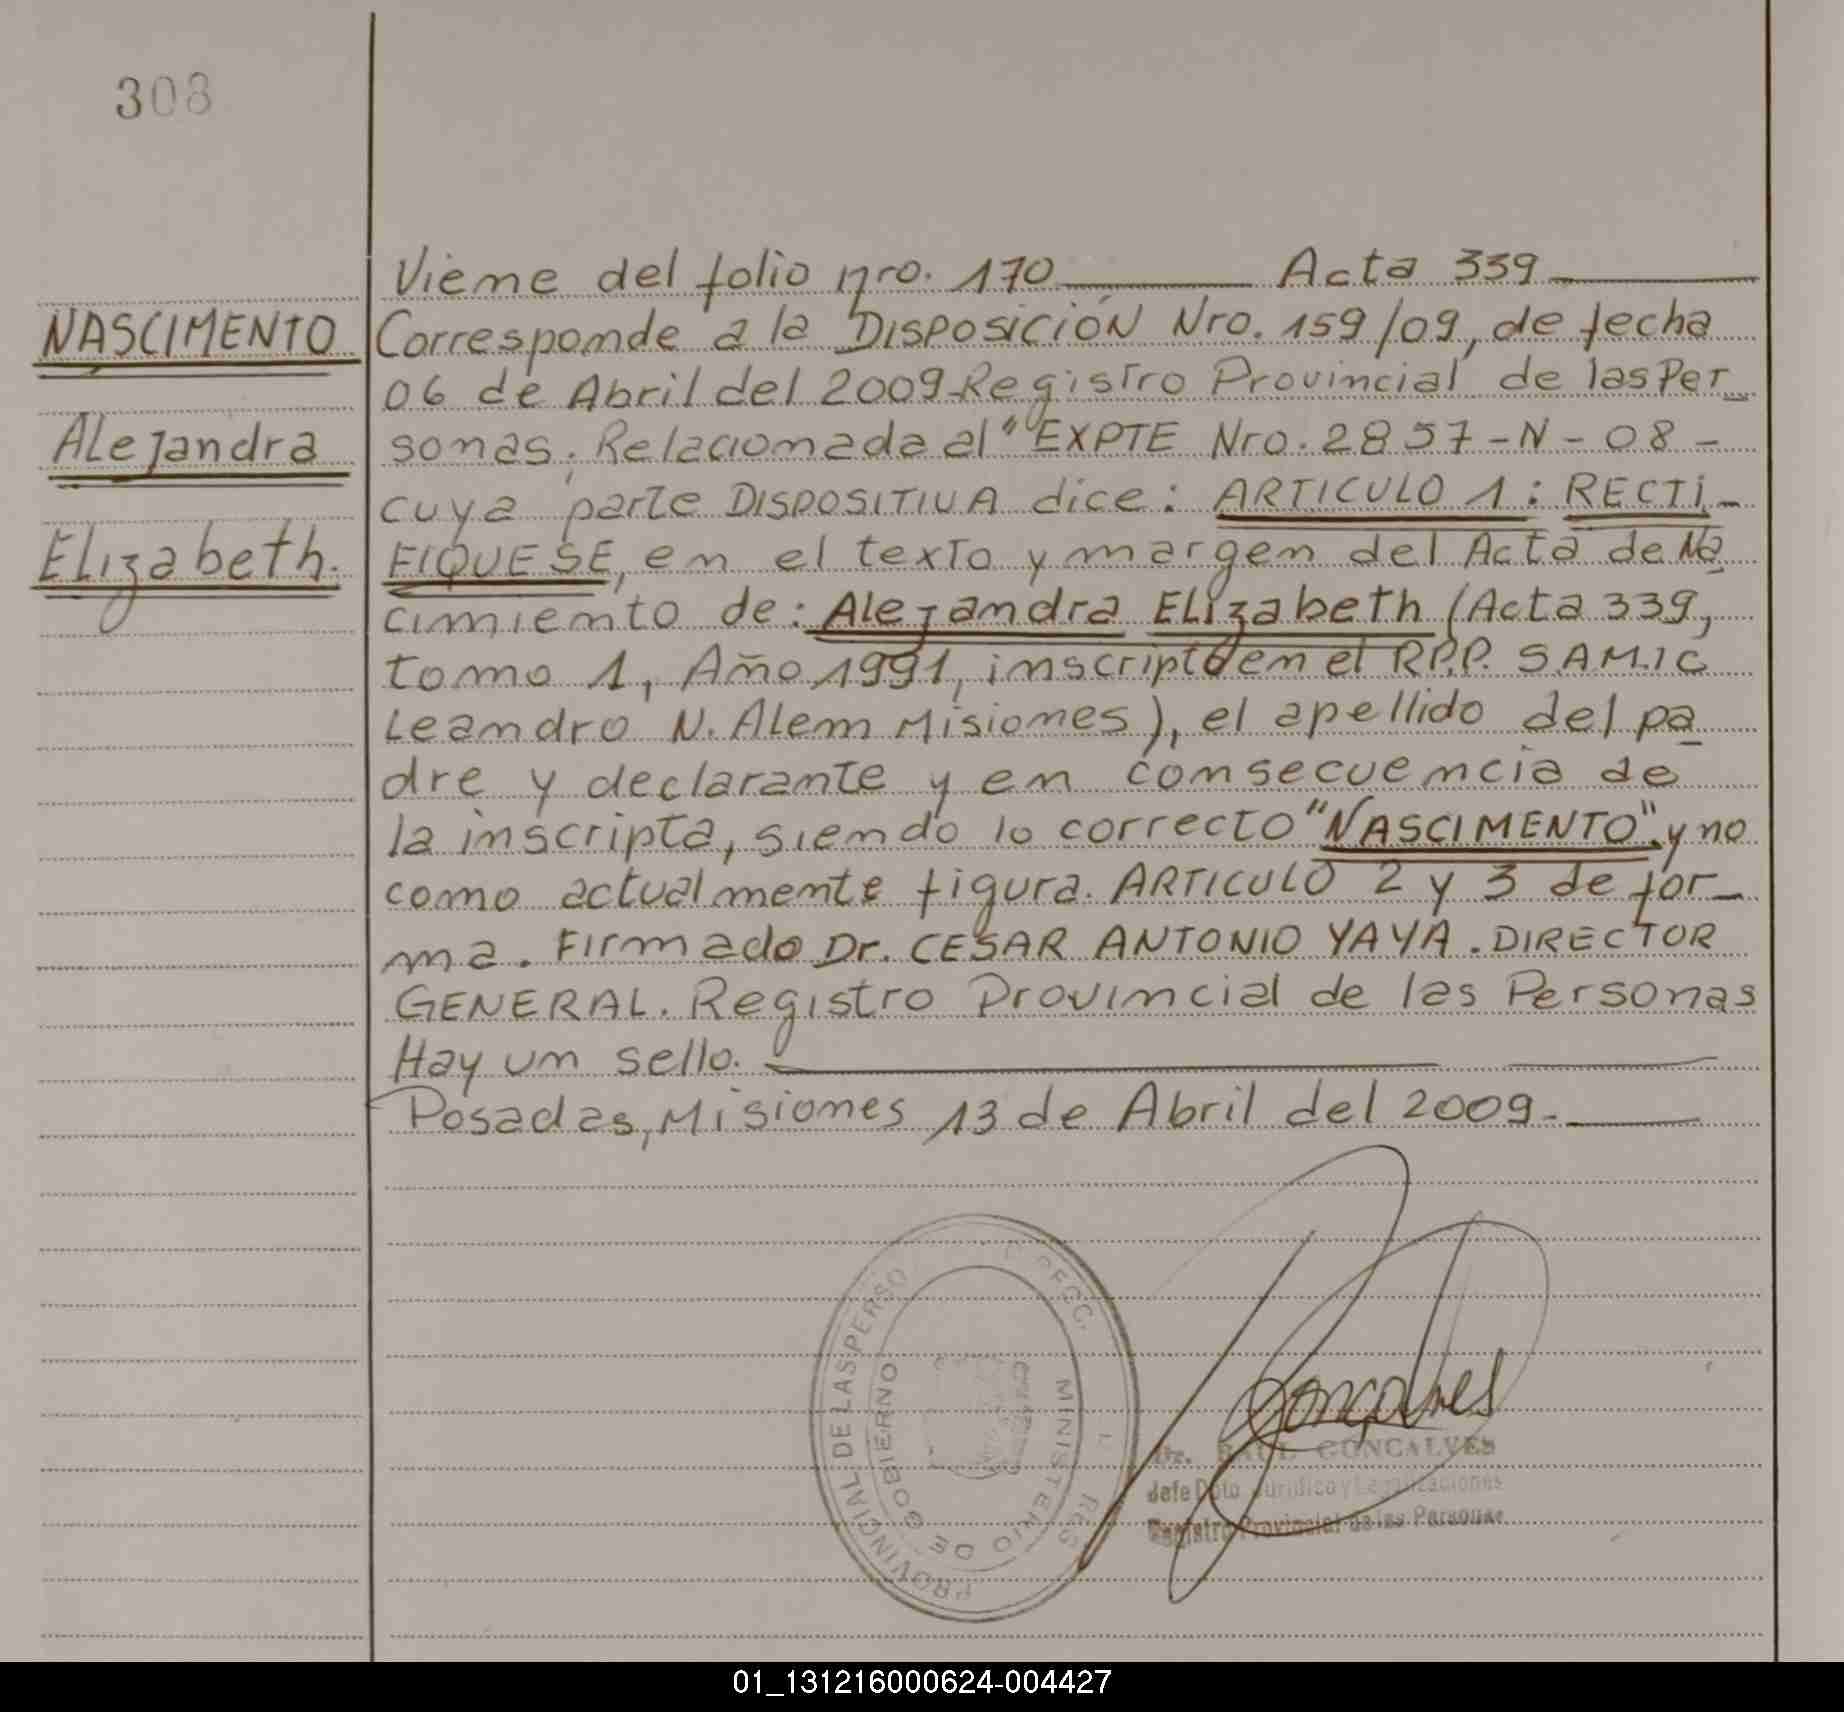 308
NASCIMENTO
Alejandra
Elizabeth.
Viene del folio nro. 170 Acta 339
Corresponde a la DISPOSICIÓN Nro. 159/09, de fecha
06 de Abril del 2009-Registro Provincial de las Per_
sonas. Relacionada al "EXPTE Nro. 2857-N-08-
cuya parte DISPOSITIVA dice: ARTICULO 1: RECTI-
FIQUESE, en el texto y margen del Acta de Na
cimiento de: Alejandra Elizabeth (Acta 339,
tomo 1, Año 1991, inscripto en el R.P.P. S.A.M.I C
Leandro N. Alem Misiones), el apellido del pa
dre y declarante y en consecuencia de
la inscripta, siendo lo correcto "NASCIMENTO" y no
como actualmente figura. ARTICULO 2 y 3 de for_
ma. Firmado Dr. CESAR ANTONIO YAYA. DIRECTOR
GENERAL. Registro Provincial de las Personas
Hay un sello.
Posadas, Misiones 13 de Abril del 2009-
PROVINCIAL DE LAS PERSO
MINISTERIO DE GOBIERNO
Goncalves
Dr. RAUL GONCALVES
Jefe Dpto Jurídico y Legalizaciones
Registro Provincial de las Personas
01_131216000624-004427